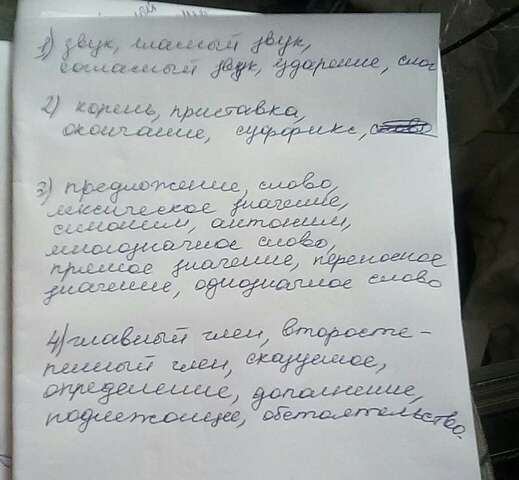 1) звук, гласный звук,
согласный звук, ударение, слог
2) корень, приставка,
окончание, суффикс,
3) предложение, слово,
лексическое значение,
синоним, антоним,
многозначное слово,
прямое значение, переносное
значение, однозначное слово
4) главный член, второсте-
пенный член, сказуемое,
определение, дополнение,
подлежащее, обстоятельство.